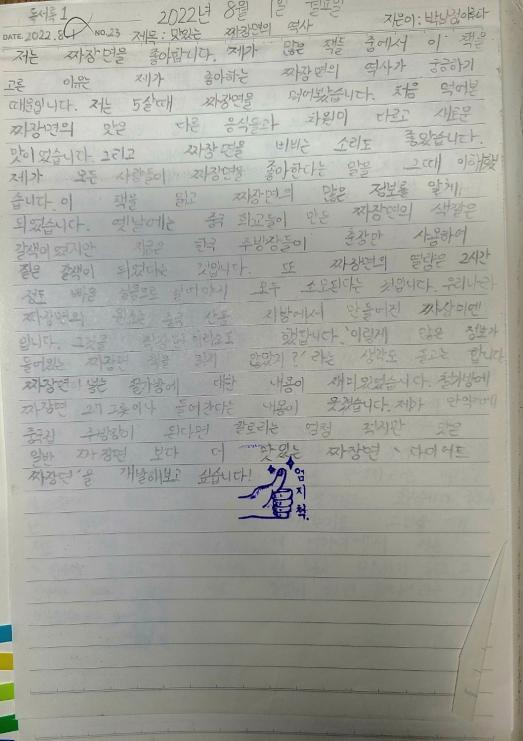 독서록 1 2022년 8월 1일 월요일
DATE. 2022.8.1 NO.23 제목: 맛있는 짜장면의 역사 지은이: 박남정
저는 짜장면을 좋아합니다. 제가 많은 책들 중에서 이 책을
고른 이유는 제가 좋아하는 짜장면의 역사가 궁금하기
때문입니다. 저는 5살때 짜장면을 먹어봤습니다. 처음 먹어본
짜장면의 맛은 다른 음식들과 차원이 다르고 새로운
맛이었습니다. 그리고 짜장면을 비비는 소리도 좋았습니다.
제가 모든 사람들이 짜장면을 좋아한다는 말을 그때 이해했
습니다. 이 책을 읽고 짜장면의 많은 정보를 알게
되었습니다. 옛날에는 중국 화교들이 만든 짜장면의 색깔은
갈색이었지만 지금은 한국 주방장들이 춘장만 사용하여
짙은 갈색이 되었다는 것입니다. 또 짜장면의 열량은 2시간
정도 빠른 걸음으로 걸어야지 모두 소모된다는 것입니다. 우리나라
짜장면의 원조는 중국 산동 지방에서 만들어진 짜장미엔
입니다. 그것을 했답니다. '이렇게 많은 정보가
들어있는 짜장면 책을 읽지 않았지?' 라는 생각도 들고는 합니다.
짜장면이 넣는 대한 내용이 재미있었습니다.
짜장면 그릇이나 들어간다는 내용이 웃겼습니다. 제가 만약에
중국집 주방장이 된다면 칼로리는 엄청 적지만 맛은
일반 짜장면 보다 더 맛있는 짜장면, '다이어트
짜장면'을 개발해보고 싶습니다!
엄지척.